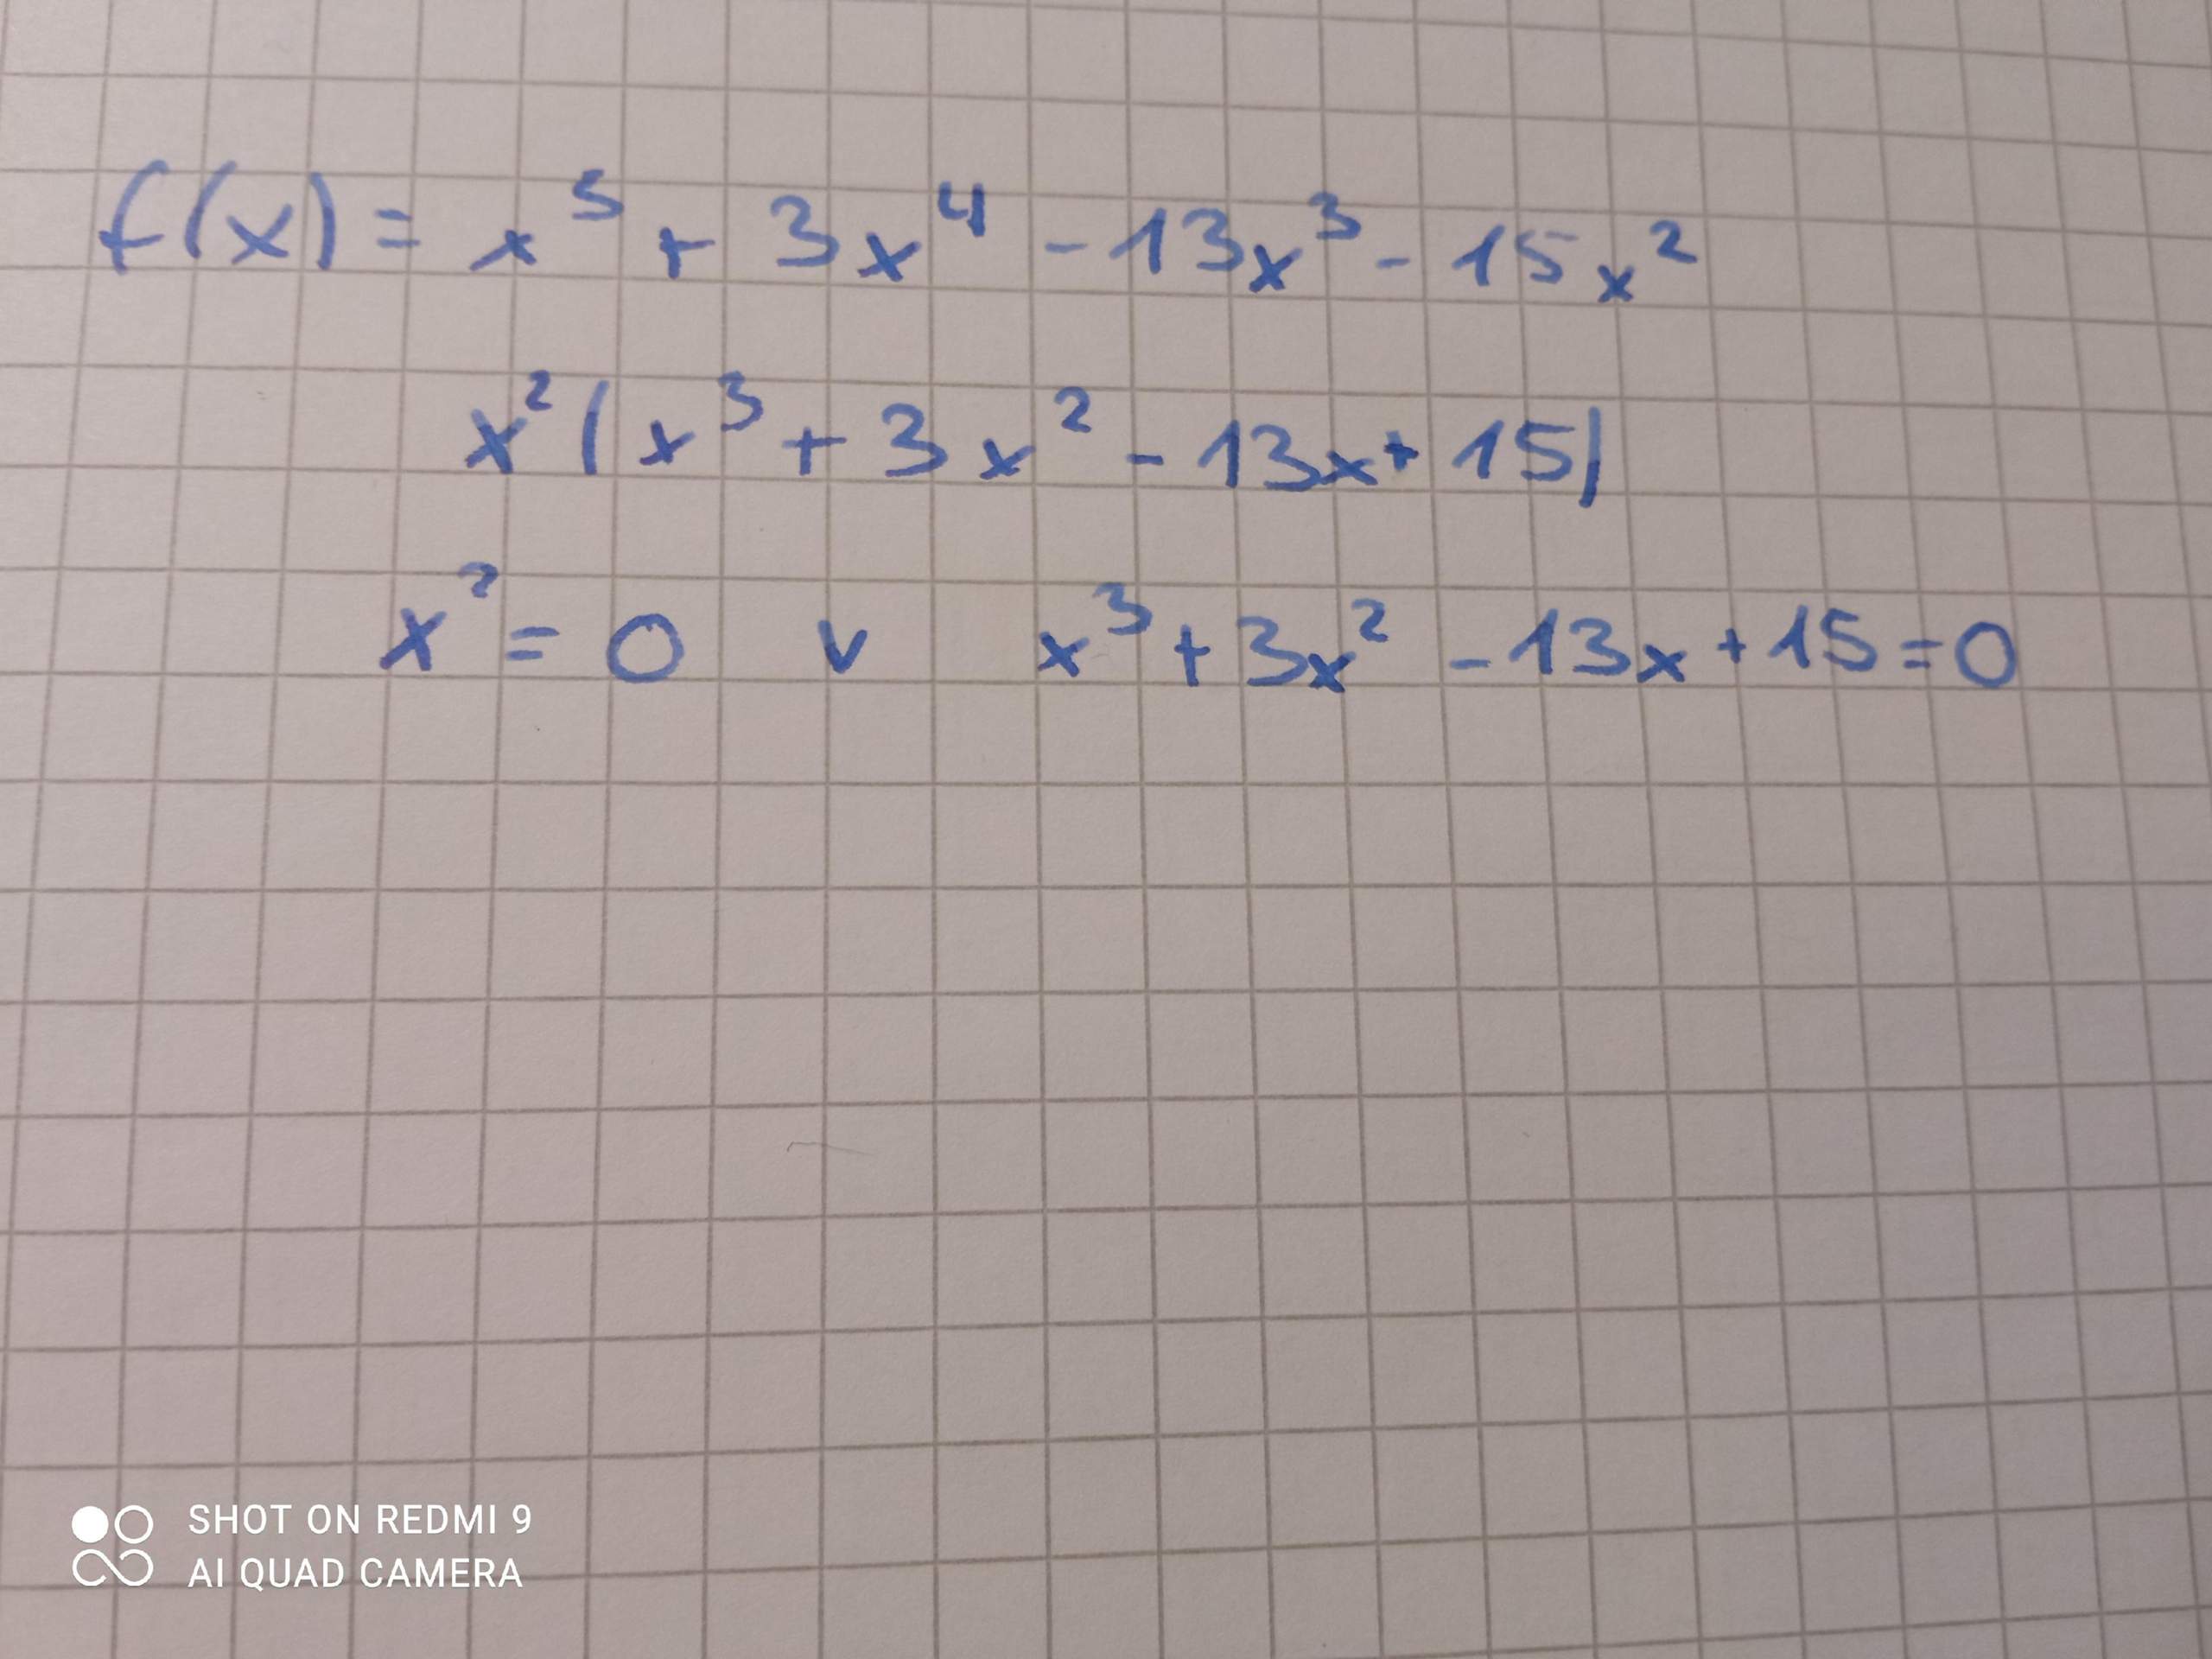 f(x) = x⁵ + 3x⁴ - 13x³ - 15x²
x² (x³ + 3x² - 13x + 15)
x² = 0 v x³ + 3x² - 13x + 15 = 0
SHOT ON REDMI 9
AI QUAD CAMERA